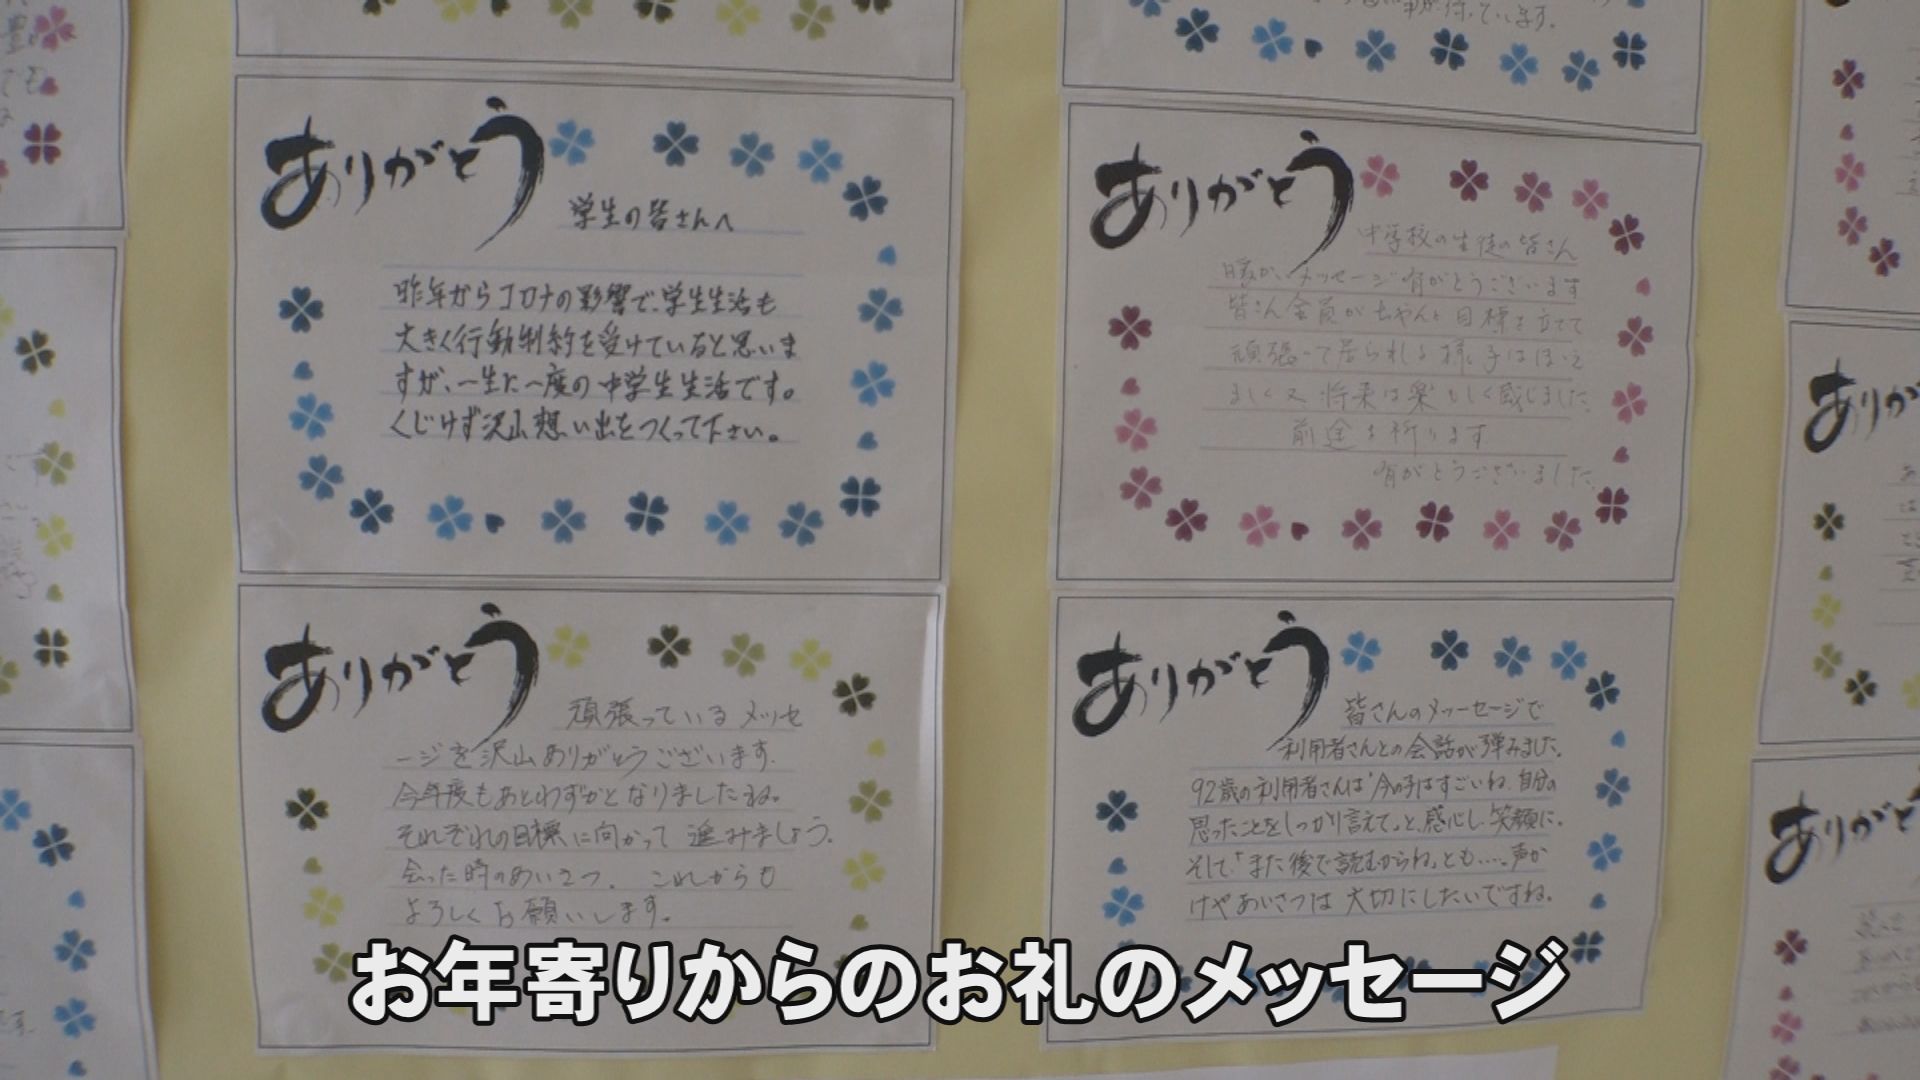 ています。
ありがとう
学生の皆さんへ
昨年からコロナの影響で、学生生活も
大きく行動制約を受けていると思いま
すが、一生に一度の中学生生活です。
くじけず沢山想い出をつくって下さい。
ありがとう
中学校の生徒の皆さん
暖かいメッセージ有がとうございます
皆さん全員がちゃんと目標を立てて
頑張って居られる様子はほほえ
ましく又将来は楽もしく感じました。
前途を祈ります
有がとうございました。
ありがとう
頑張っているメッセ
ージを沢山ありがとうございます。
今年度もあとわずかとなりましたね。
それぞれの目標に向かって進みましょう。
会った時のあいさつ、これからも
よろしくお願いします。
ありがとう
皆さんのメッーセージで
利用者さんとの会話が弾みました。
92歳の利用者さんは「今の子はすごいね、自分の
思ったことをしっかり言えて。」と、感心し、笑顔に。
そして、「また後で読むからね。」とも....。声か
けやあいさつは大切にしたいですね。
ありが
ありがと
お年寄りからのお礼のメッセージ